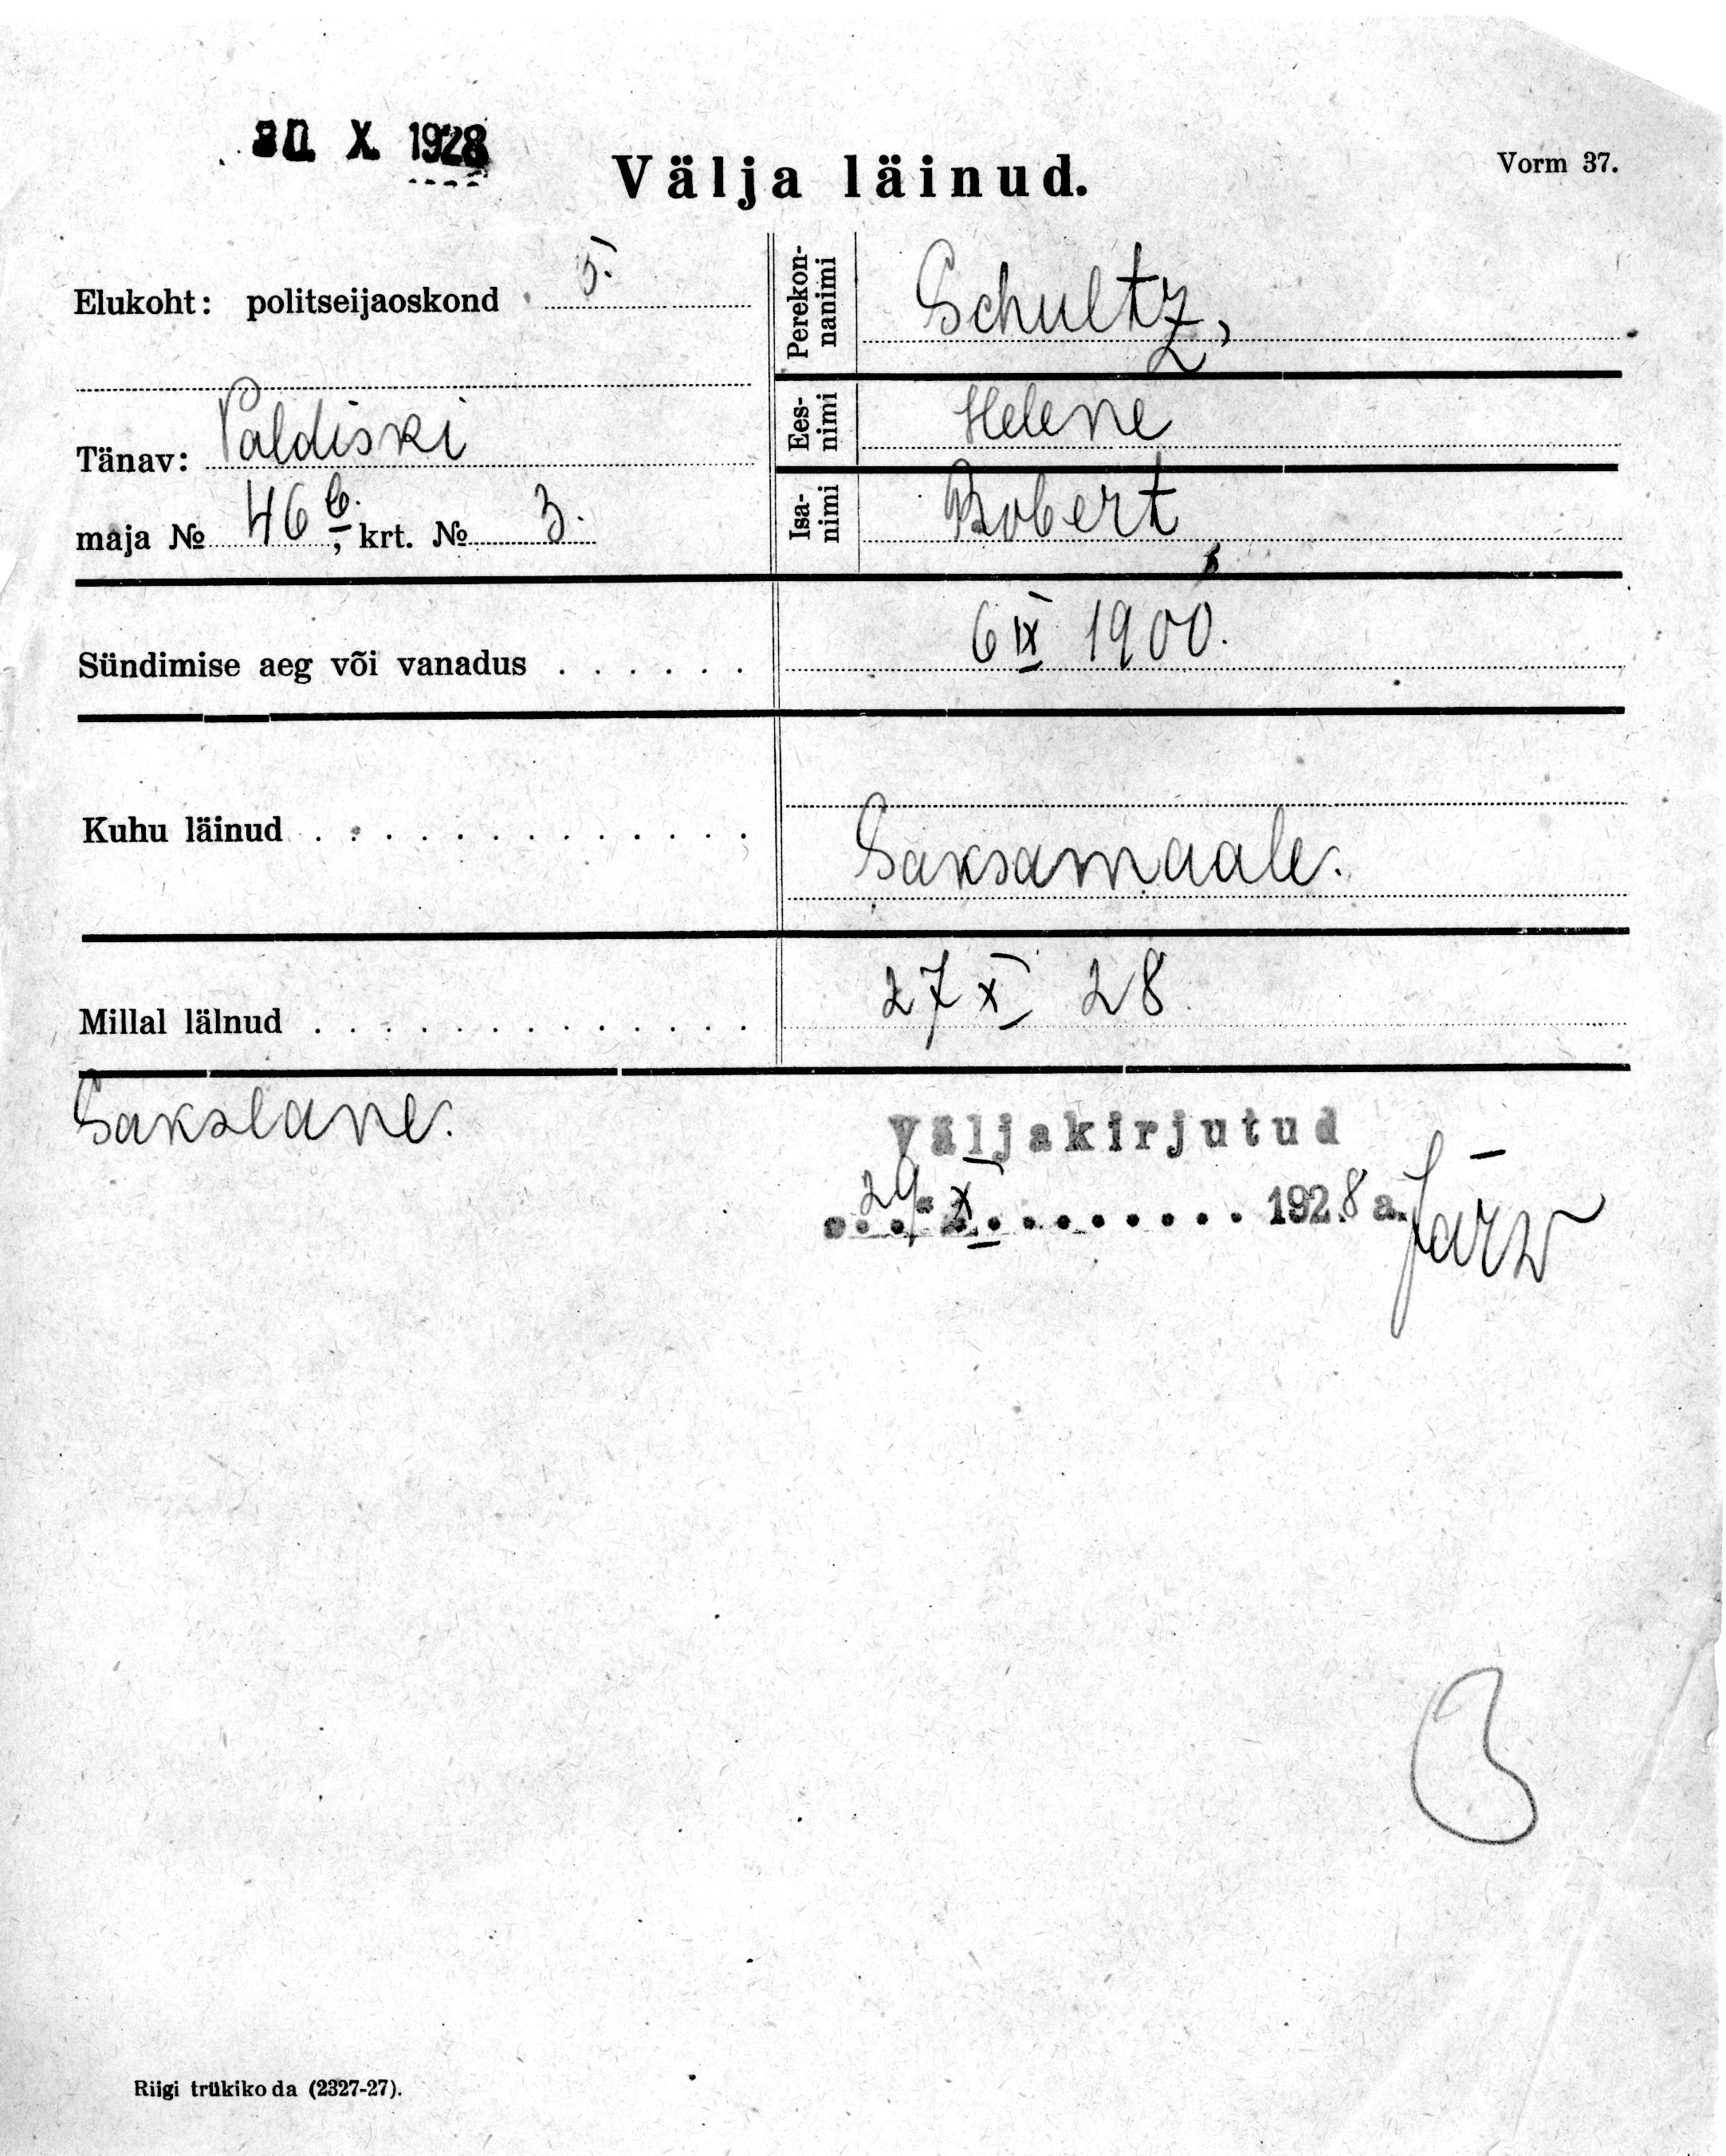 30. X. 1928
Välja läinud.
Vorm 37.
Elukoht: politseijaoskond 5.
Perekon-
nanimi
Schultz,
Tänav: Paldiski
Ees-
nimi
Helene
maja № 46 b, krt. № 3.
Isa-
nimi
Robert
Sündimise aeg või vanadus . . . . . . 6 IX 1900.
Kuhu läinud . . . . . . . . . . . . . Saksamaale.
Millal lälnud . . . . . . . . . . . . . 27 X 28.
Sakslane.
Väljakirjutud
29. X. . . . . . . . . 1928 a. Järw
Riigi trükikoda (2327-27).